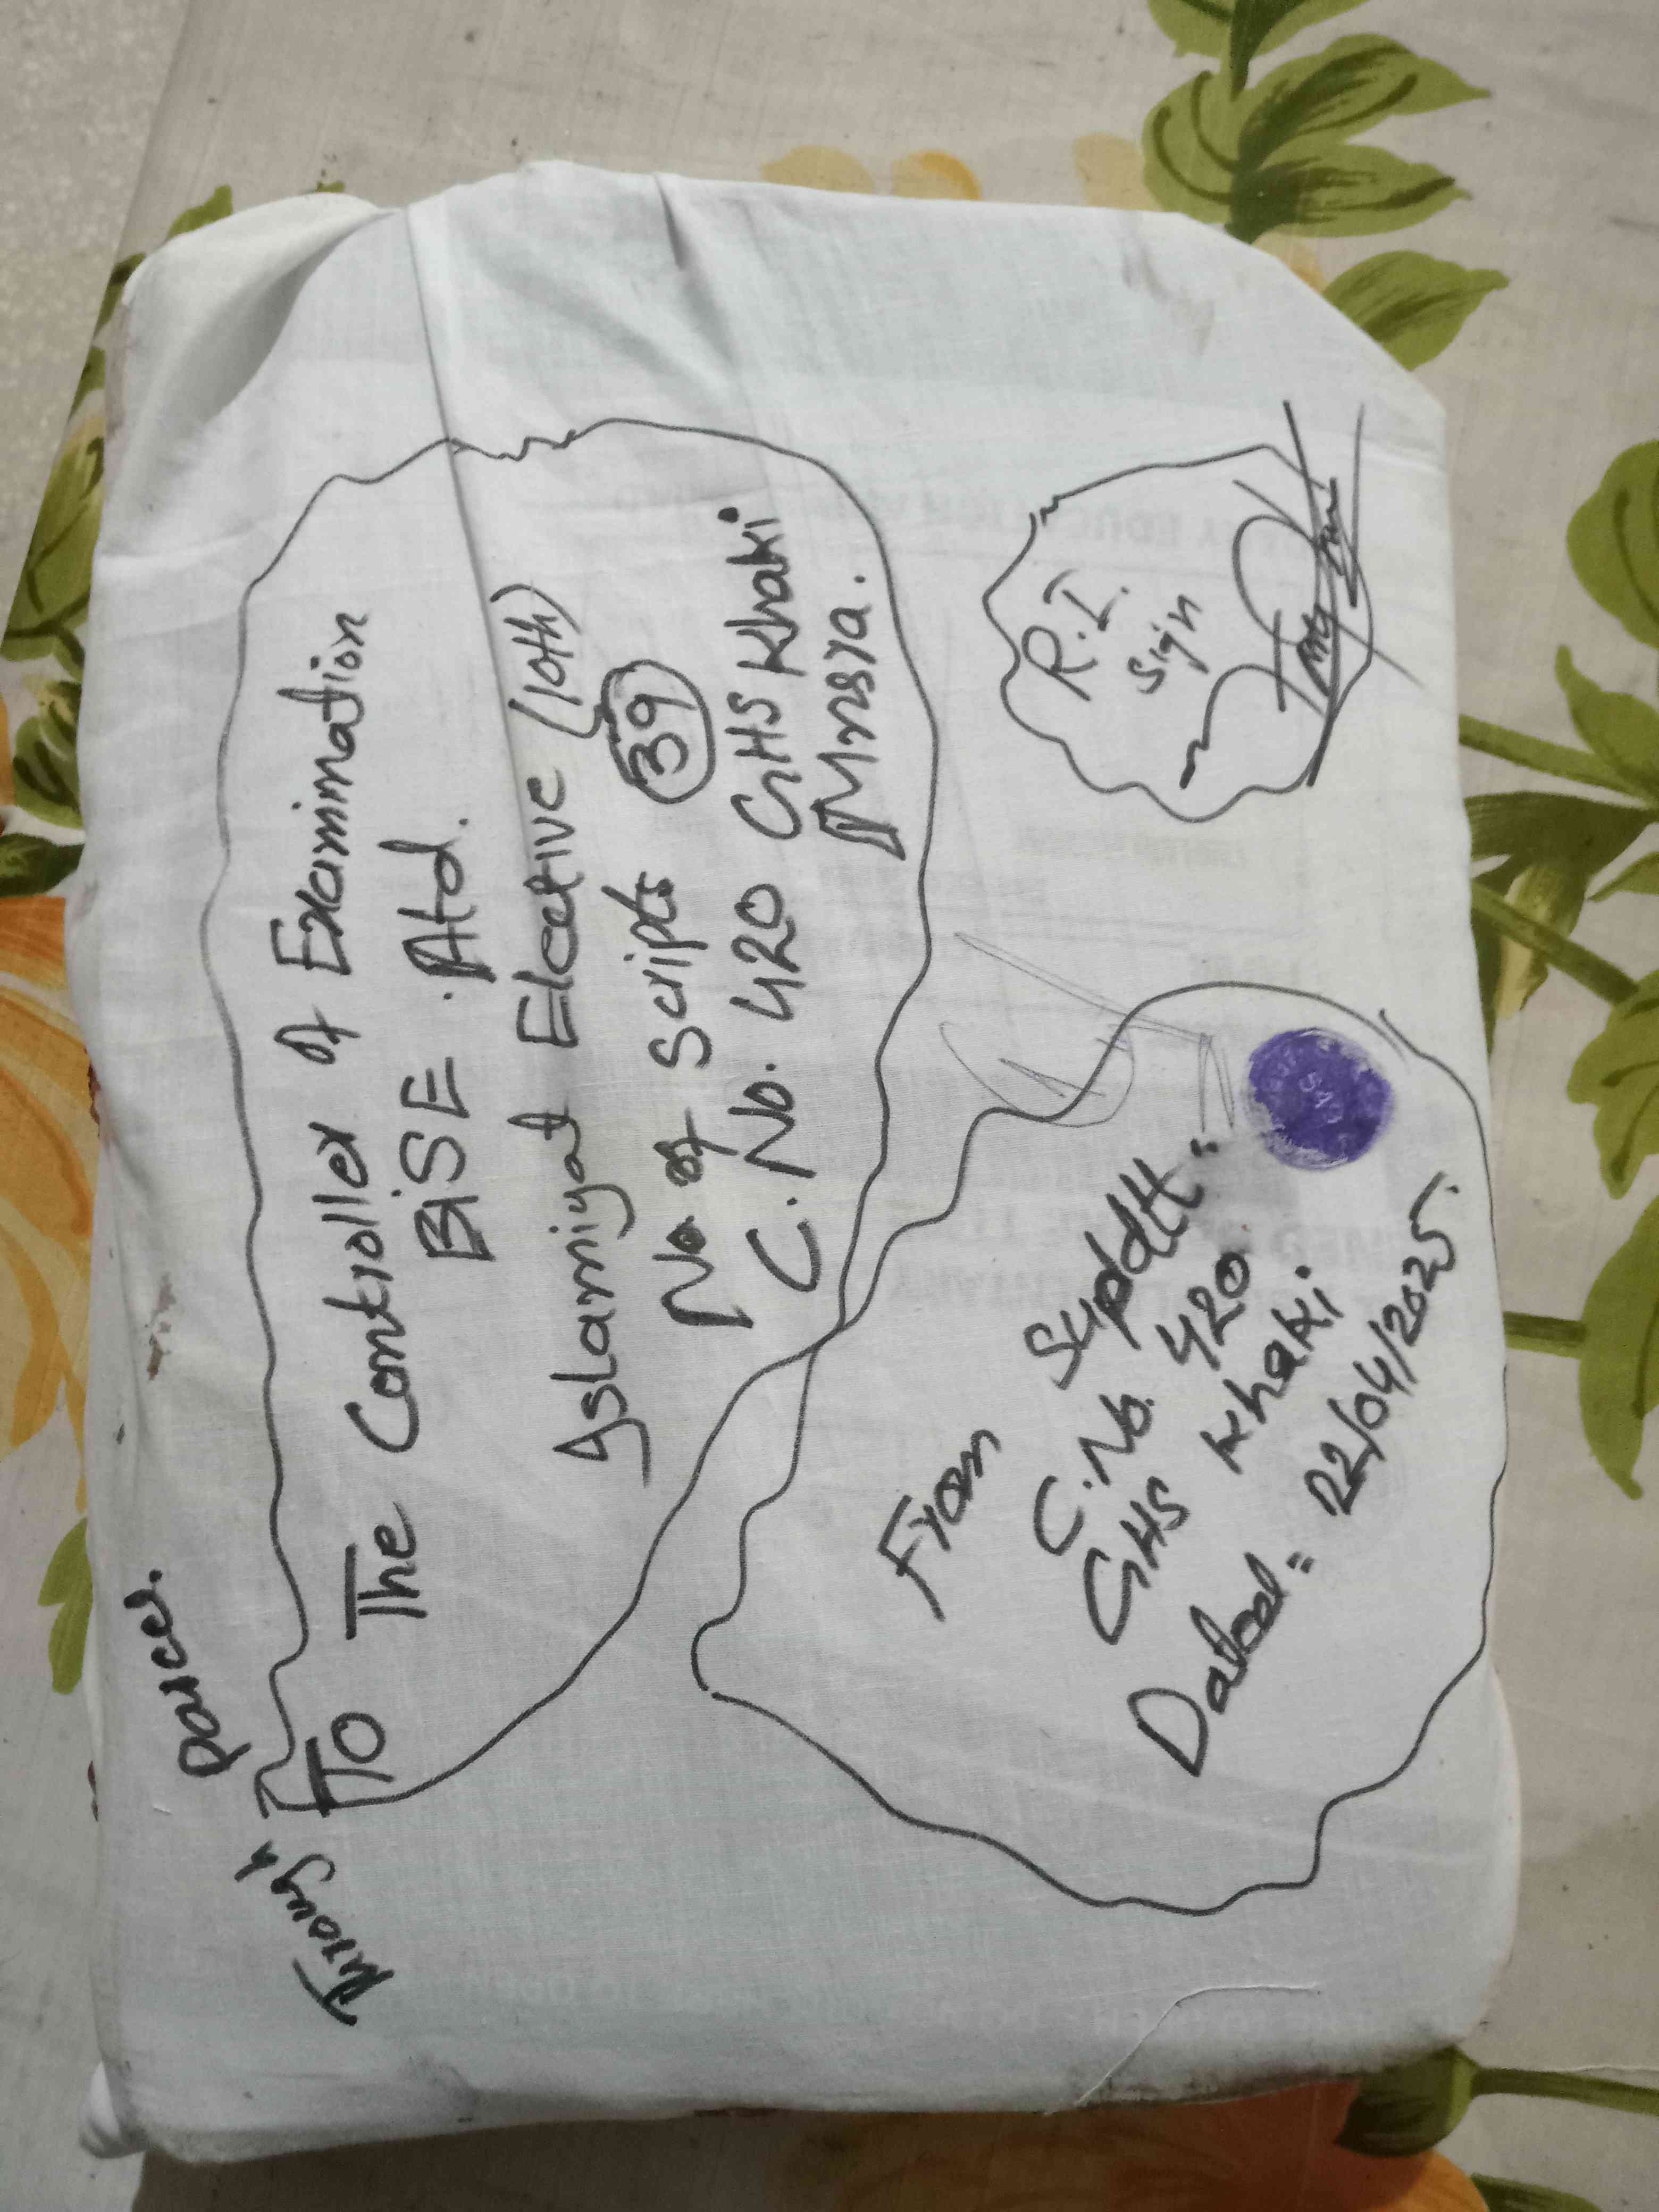 Through Parcel.
To
The Controller of Examination
BiSE. Atd.
Islamiyat Elective (10th)
No of Scripts 39
C. No. 420 GHS Khaki
Mnsra.
R.I.
Sign
From
Supdtt:
C. No. 420
GHS Khaki
Dated: 22/04/2025.